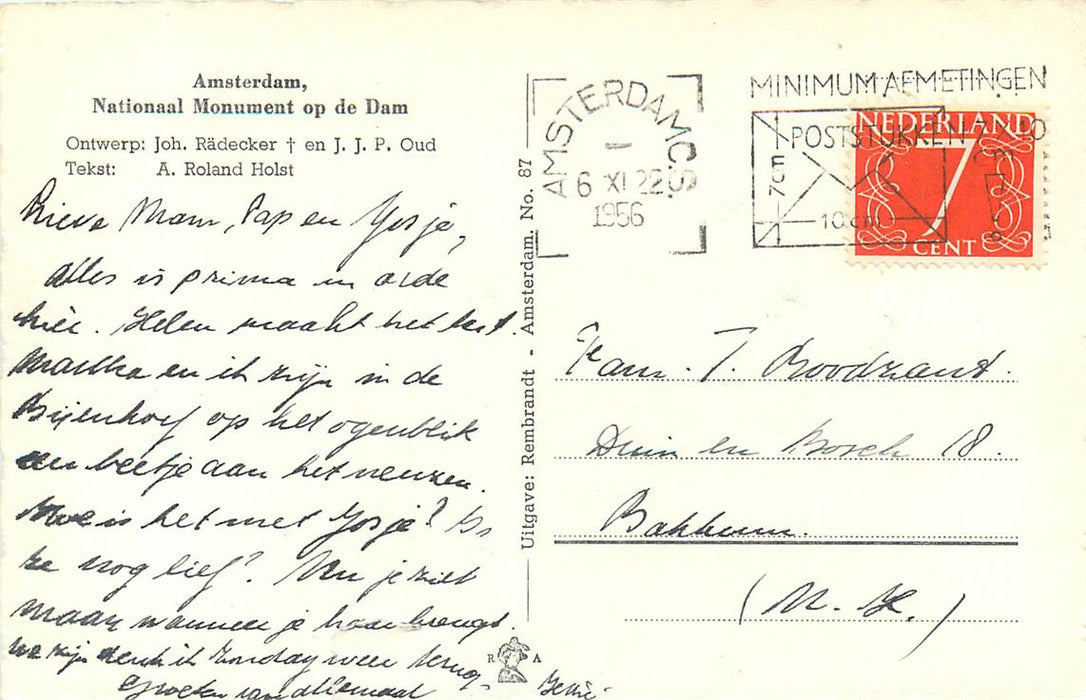 Amsterdam,
Nationaal Monument op de Dam
Ontwerp: Joh. Rädecker † en J. J. P. Oud
Tekst: A. Roland Holst
Lieve Mam, Pap en Josje,
Alles is prima in orde
hier. Helen maakt het best.
Martha en ik zijn in de
Bijenhorf op het ogenblik
een beetje aan het neuzen.
Hoe is het met Josje? Is
ze nog lief? Nu je ziet
maar wanneer je haar brengt.
We zijn denk ik Zondag weer terug.
Groeten van allemaal
Uitgave: Rembrandt - Amsterdam. No. 87
R A
AMSTERDAM C.S.
6 XI 22
1956
MINIMUM AFMETINGEN
POSTSTUKKEN 7 x 10
7cm
10cm
NEDERLAND
7
CENT
Fam. T. Roodzant.
Duin en Bosch 18.
Bakkum.
(N. H.)